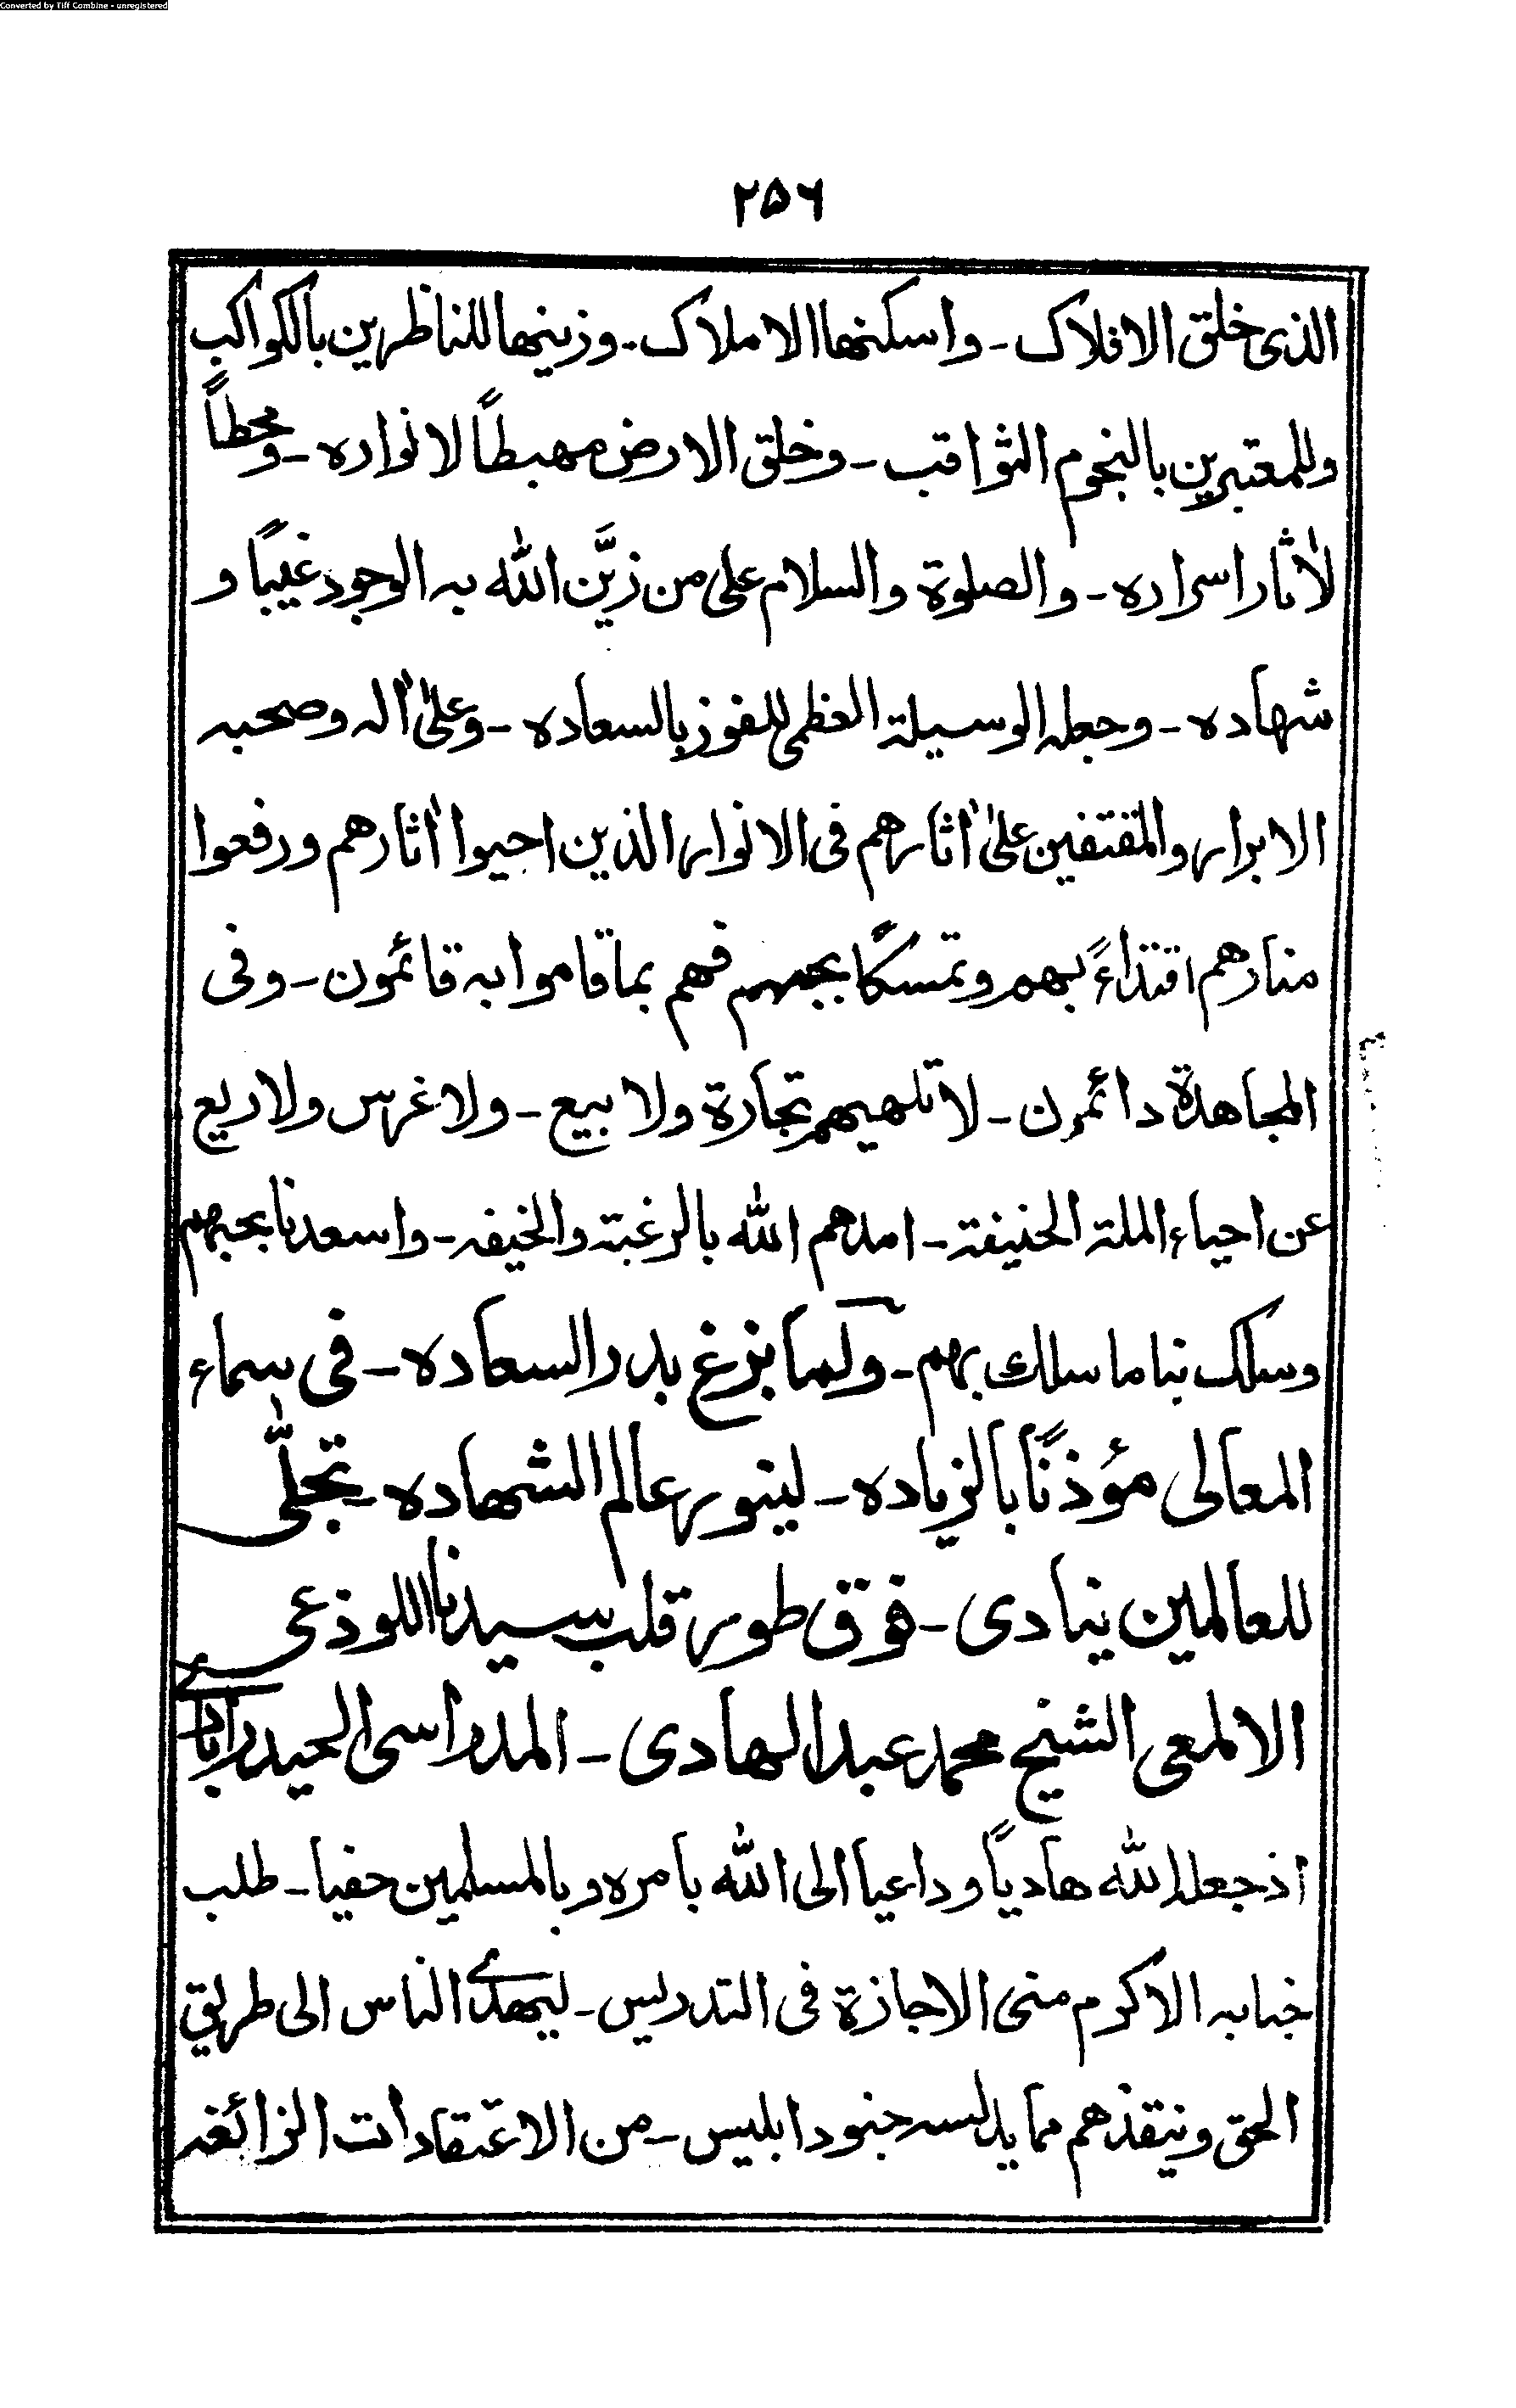 Converted by Tiff Combine - unregistered
۲۵۶
الذی خلق الافلاک ۔ واسکنها الاملاک ۔ وزینها للناظرین بالکواکب
وللمعتبرین بالنجوم الثواقب ۔ وخلق الارض مهبطاً لانواره ۔ ومحطاً
لاٰثار اسراره ۔ والصلوة والسلام علی من زیَّن الله به الوجود غیبًا و
شهاده ۔ وجعله الوسیلة العظمی للفوز بالسعاده ۔ وعلیٰ اٰله وصحبه
الابرار والمقتفین علیٰ اٰثارهم فی الانوار الذین احیوا اٰثارهم ورفعوا
منارهم اقتداءً بهم وتمسکًا بحبهم فهم بما قاموا به قائمون ۔ وفی
المجاهدة دائمون ۔ لا تلهیهم تجارة ولا بیع ۔ ولا غرس ولا ریع
عن احیاء الملة الحنیفة ۔ امدهم الله بالرغبة والخیفه ۔ واسعدنا بحبهم
وسلک بنا ما سلک بهم ۔ ولما بزغ بدر السعاده ۔ فی سماء
المعالی مؤذنًا بالزیاده ۔ لینور عالم الشهاده ۔ تجلّٰی
للعالمین ینادی ۔ فوق طور قلب سیدنا اللوذعی
الالمعی الشیخ محمد عبد الهادی ۔ المدراسی الحیدرابادی
اذ جعله الله هادیاً وداعیا الی الله بامره وبالمسلمین حفیا ۔ طلب
جنابه الاکرم منی الاجازة فی التدریس ۔ لیهدی الناس الی طریق
الحق وینقذهم مما یدلسه جنود ابلیس ۔ من الاعتقادات الزائغه